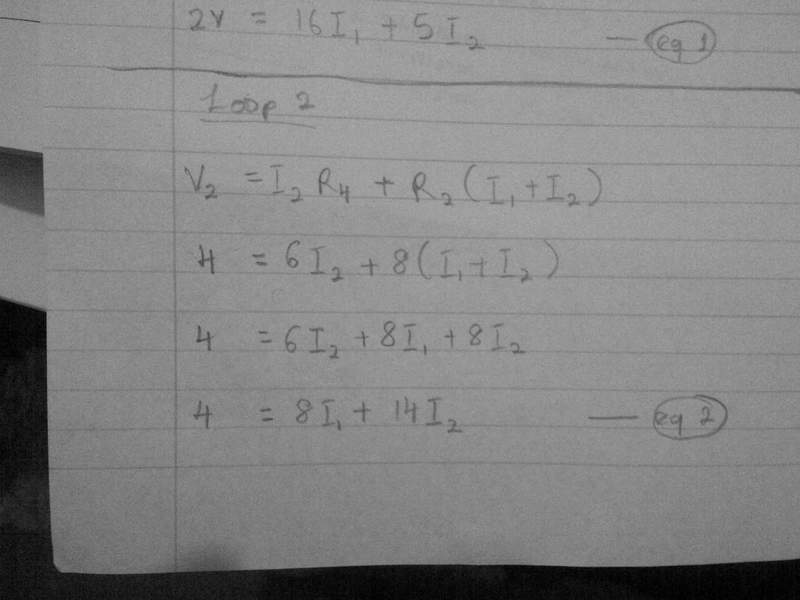 2V = 16I₁ + 5I₂ — eq 1
Loop 2
V₂ = I₂ R₄ + R₂ (I₁ + I₂)
4 = 6I₂ + 8(I₁ + I₂)
4 = 6I₂ + 8I₁ + 8I₂
4 = 8I₁ + 14I₂ — eq 2